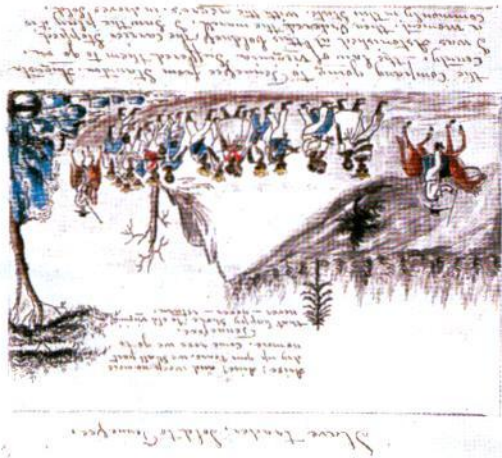 Slave trader, Sold to Tennessee,
Arise! Arise! and weep no more
dry up your tears, we shall part
no more. Come rose we go to
Tennessee,
that happy shore, to old virginia
never — never — return.
the Company going to Tennessee from Staunton, Augusta
County, — the law of Virginia Suffered them to go on.
I was Astonished at this boldness, the carrier Stopped
a moment, then Ordered the march, I Saw the
Commonly in this State, with the negro's in droves Sold.